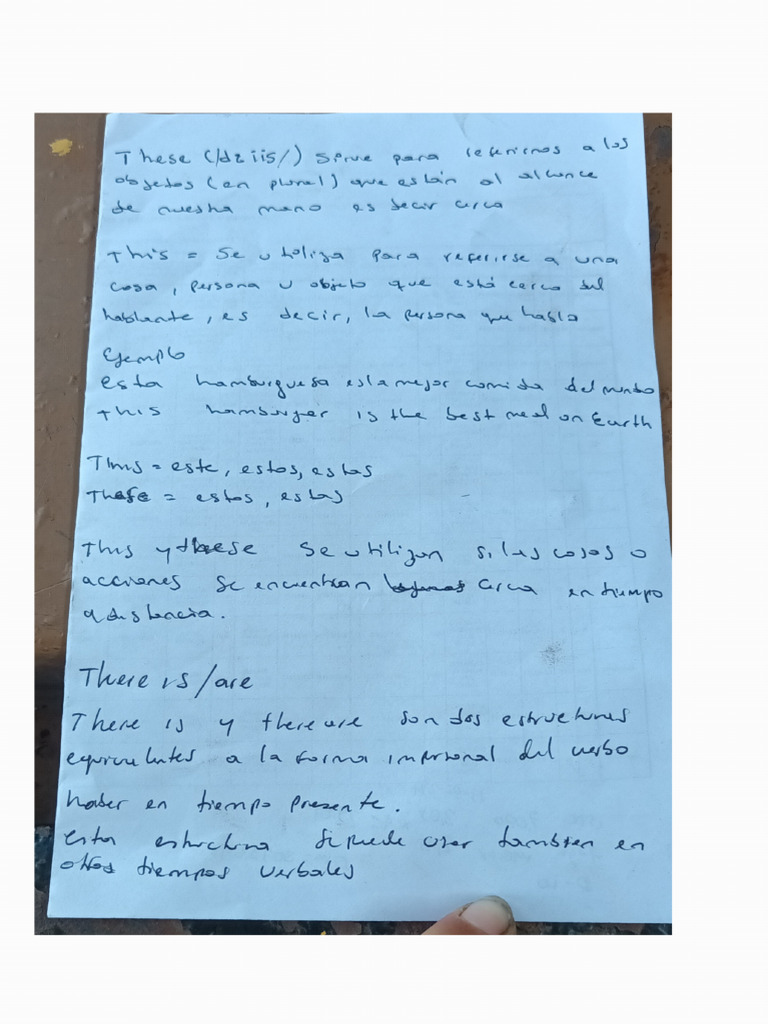 These (/dziis/) Sirve para referirnos a los
objetos (en plural) que están al alcance
de nuestra mano es decir cerca
This = Se utiliza para referirse a una
cosa, persona u objeto que está cerca del
hablante, es decir, la persona que habla
Ejemplo
esta hamburguesa es la mejor comida del mundo
this hamburger is the best meal on Earth
This = este, estos, estas
These = estos, estas
This y these se utilizan si las cosas o
acciones se encuentran cerca en tiempo
a distancia.
There is/are
There is y there are son dos estructuras
equivalentes a la forma impersonal del verbo
haber en tiempo presente.
esta estructura se puede usar tambien en
otros tiempos verbales